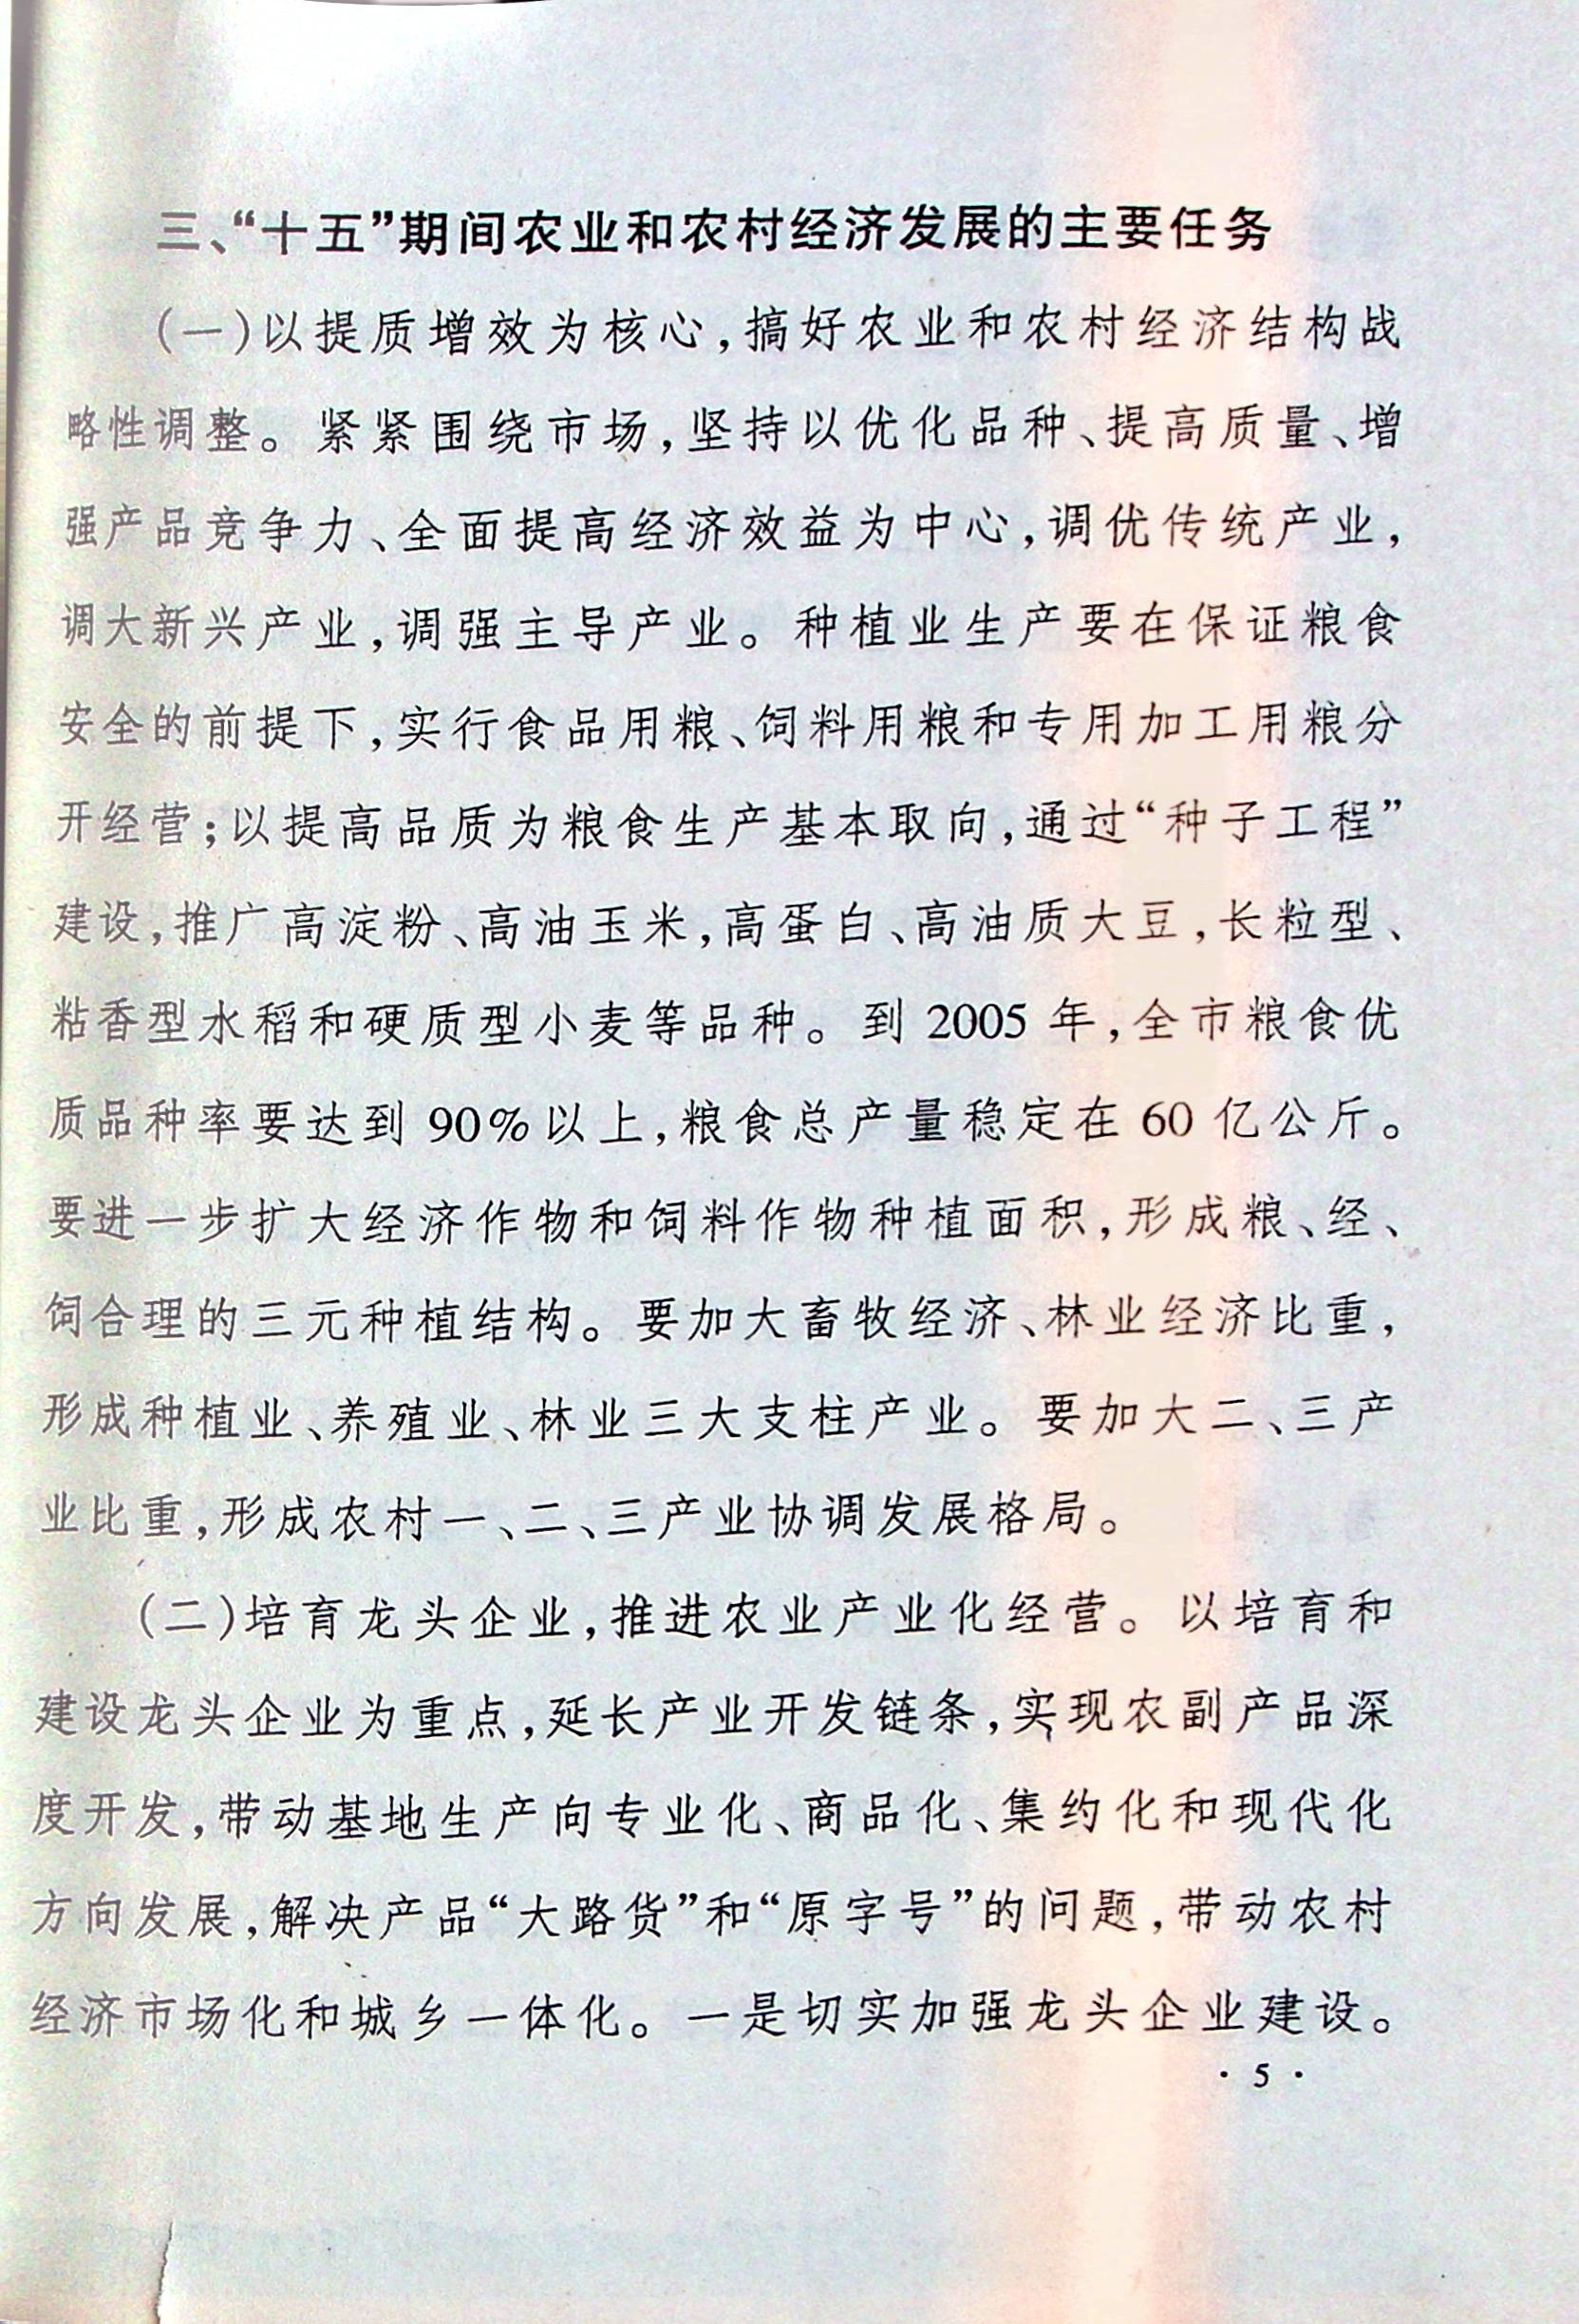 三、“十五”期间农业和农村经济发展的主要任务
(一)以提质增效为核心,搞好农业和农村经济结构战
略性调整。紧紧围绕市场,坚持以优化品种、提高质量、增
强产品竞争力、全面提高经济效益为中心,调优传统产业,
调大新兴产业,调强主导产业。种植业生产要在保证粮食
安全的前提下,实行食品用粮、饲料用粮和专用加工用粮分
开经营;以提高品质为粮食生产基本取向,通过“种子工程”
建设,推广高淀粉、高油玉米,高蛋白、高油质大豆,长粒型、
粘香型水稻和硬质型小麦等品种。到 2005 年,全市粮食优
质品种率要达到 90%以上,粮食总产量稳定在 60 亿公斤。
要进一步扩大经济作物和饲料作物种植面积,形成粮、经、
饲合理的三元种植结构。要加大畜牧经济、林业经济比重,
形成种植业、养殖业、林业三大支柱产业。要加大二、三产
业比重,形成农村一、二、三产业协调发展格局。
(二)培育龙头企业,推进农业产业化经营。以培育和
建设龙头企业为重点,延长产业开发链条,实现农副产品深
度开发,带动基地生产向专业化、商品化、集约化和现代化
方向发展,解决产品“大路货”和“原字号”的问题,带动农村
经济市场化和城乡一体化。一是切实加强龙头企业建设。
· 5 ·